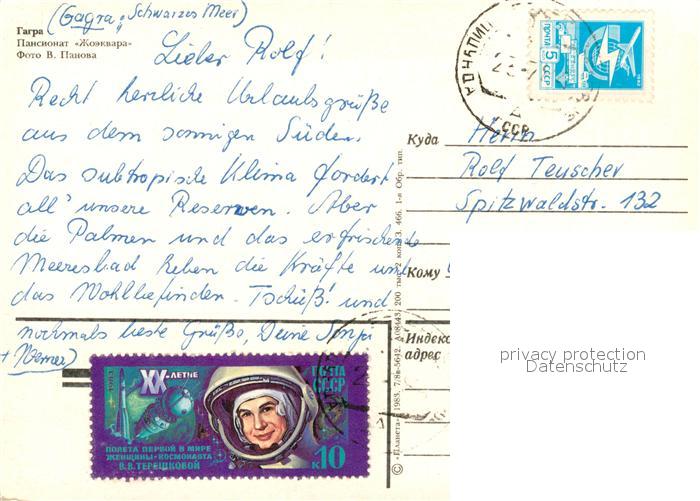 (Gagra, Schwarzes Meer)
Гагра
Пансионат «Жоэквара»
Фото В. Панова
Lieber Rolf!
Recht herzliche Urlaubsgrüße
aus dem sonnigen Süden.
Das subtropische Klima fordert
all' unsere Reserven. Aber
die Palmen und das erfrischende
Meeresbad heben die Kräfte und
das Wohlbefinden. Tschüß! und
nochmals beste Grüße, Deine
+ Werner)
ПОЧТА
5
СССР
Куда
Herrn
Rolf Teuscher
Spitzwaldstr. 132
Кому
Индекс
адрес
privacy protection
Datenschutz
1983
XX-ЛЕТИЕ
ПОЧТА
СССР
ПОЛЕТА ПЕРВОЙ В МИРЕ
ЖЕНЩИНЫ-КОСМОНАВТА
В.В.ТЕРЕШКОВОЙ
к10
© «Планета» 1983. 7/8в-5642. 200 тыс. 2 коп. З. 466. 1-я Обр. тип.